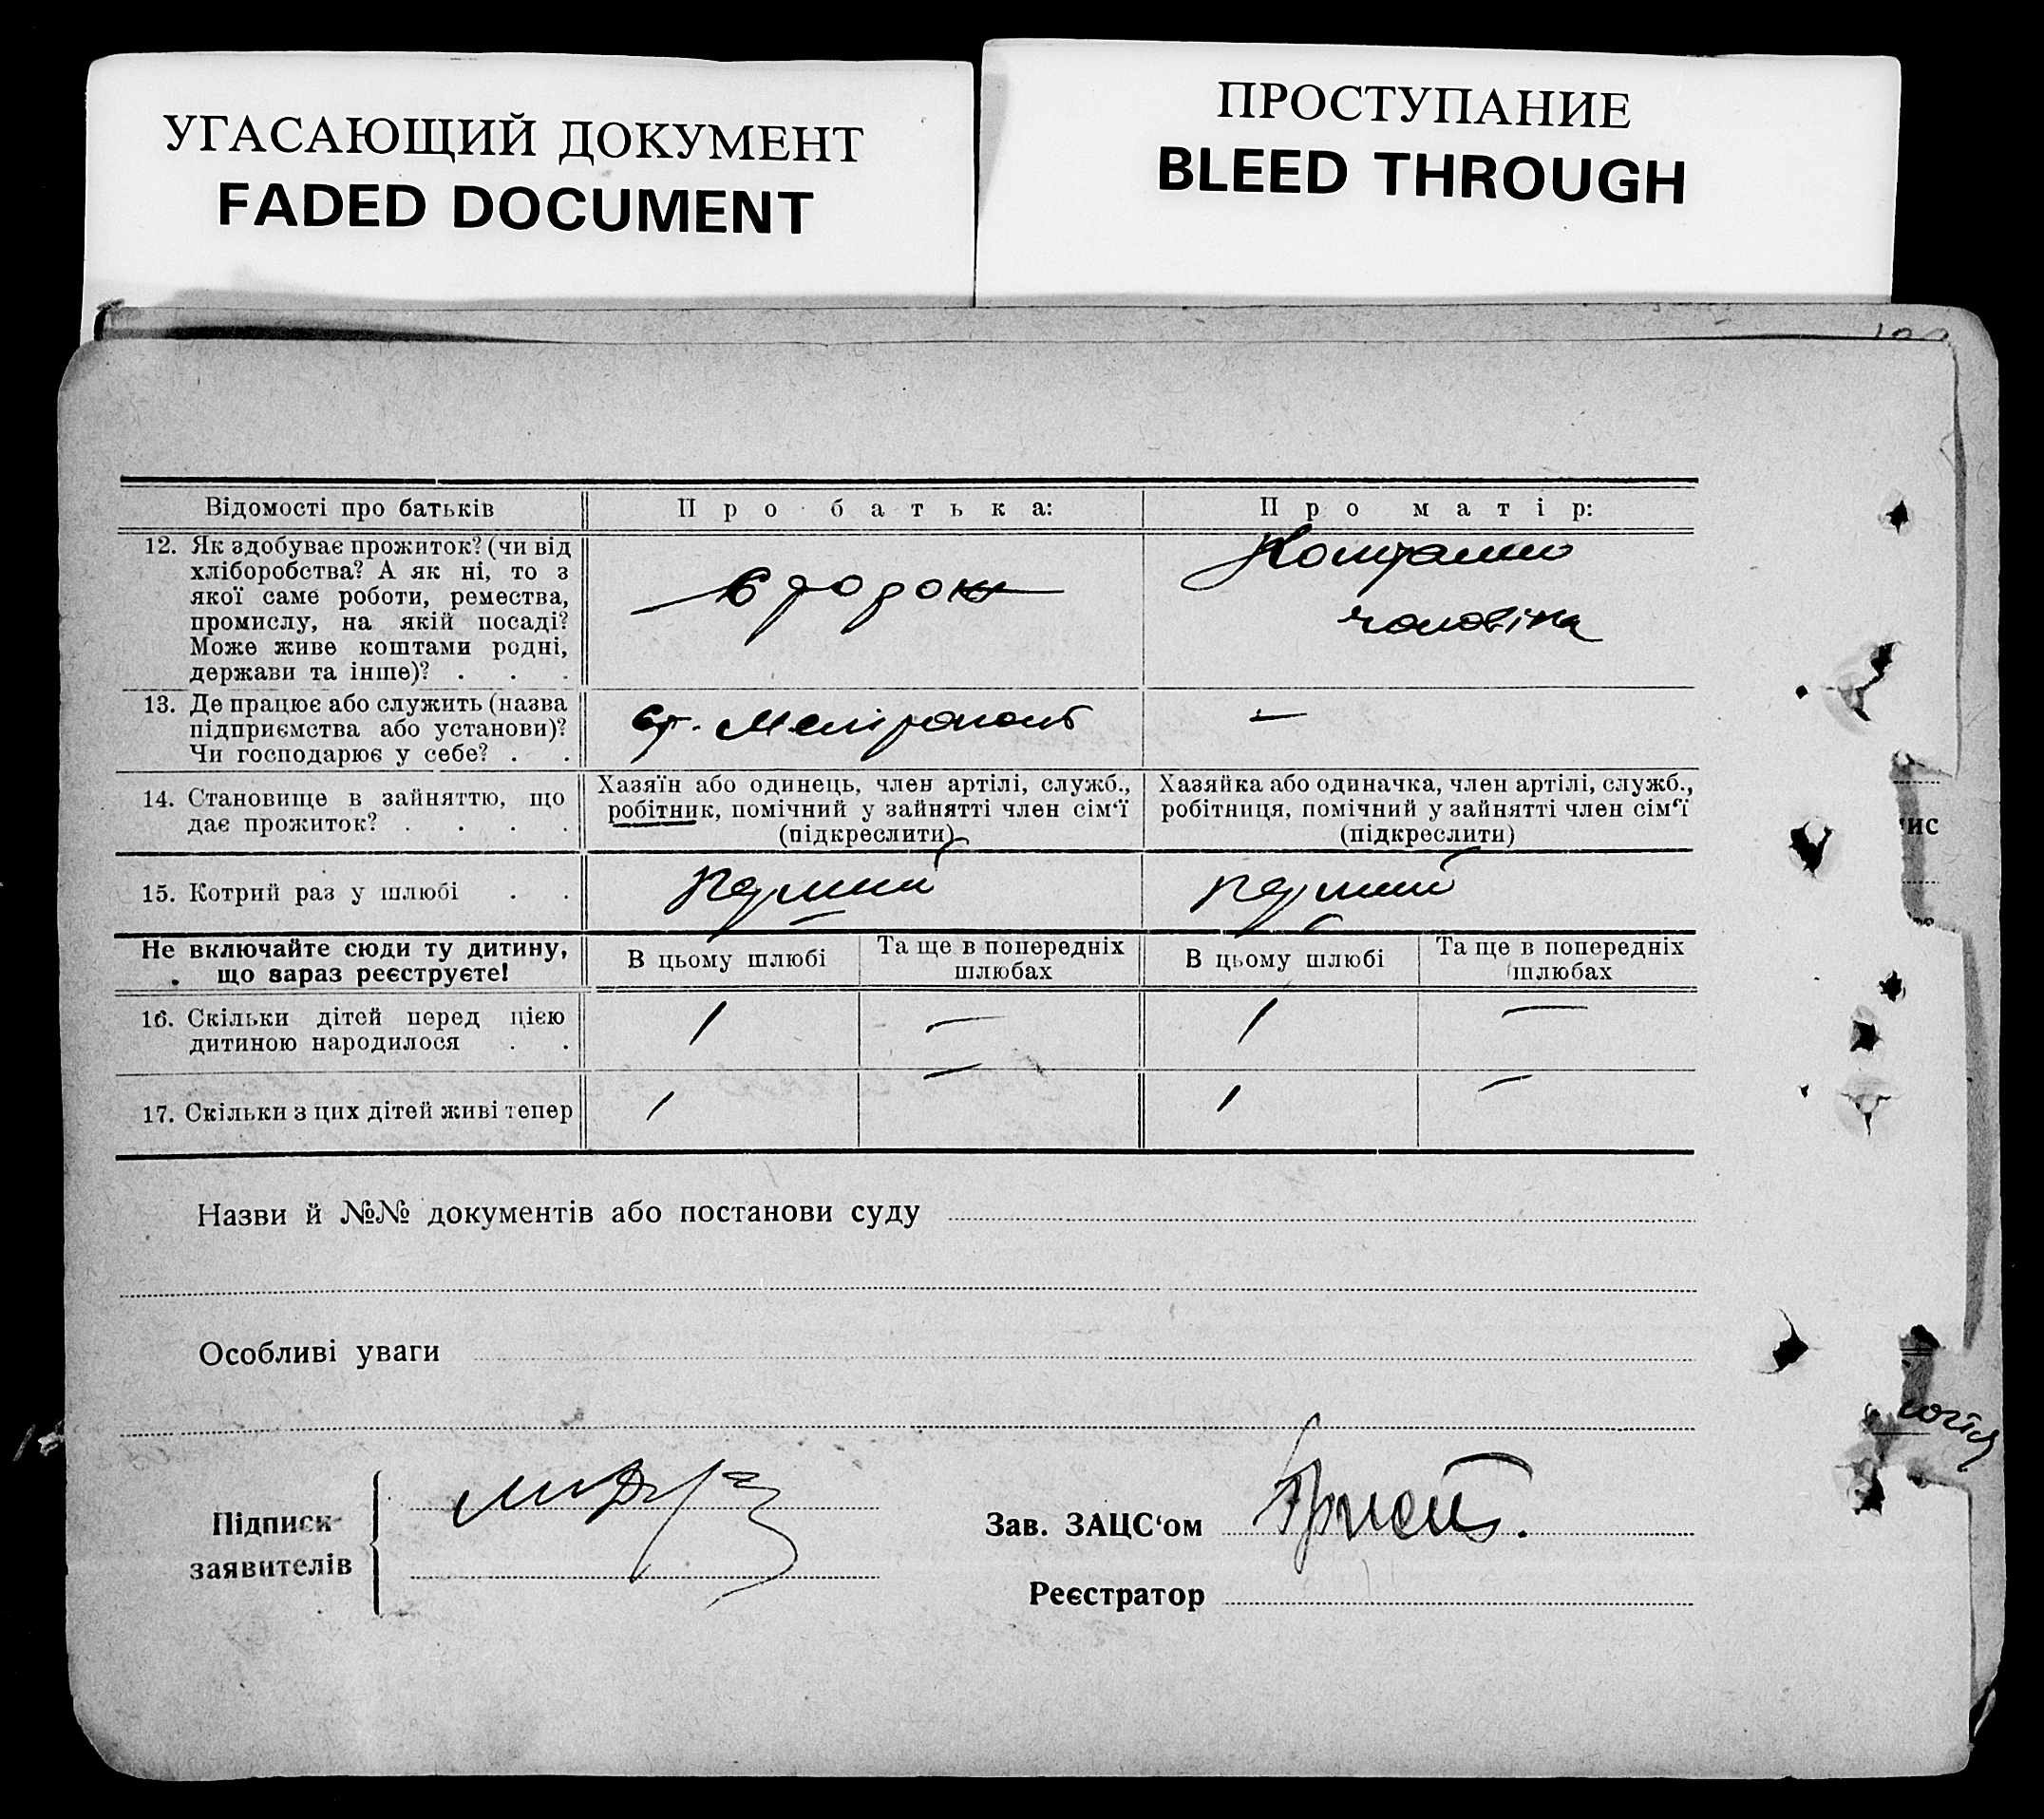 УГАСАЮЩИЙ ДОКУМЕНТ
FADED DOCUMENT
ПРОСТУПАНИЕ
BLEED THROUGH
Відомості про батьків
Про батька:
Про матір:
12. Як здобуває прожиток? (чи від
хліборобства? А як ні, то з
якої саме роботи, ремества,
промислу, на якій посаді?
Може живе коштами родні,
держави та інше)? . . .
Сторож
Коштами
чоловіка
13. Де працює або служить (назва
підприємства або установи)?
Чи господарює у себе? . .
ст. Мелітополь
—
14. Становище в зайняттю, що
дає прожиток? . . . .
Хазяїн або одинець, член артілі, служб.,
робітник, помічний у зайнятті член сім'ї
(підкреслити)
Хазяйка або одиначка, член артілі, служб.,
робітниця, помічний у зайнятті член сім'ї
(підкреслити)
15. Котрий раз у шлюбі . .
перший
перший
Не включайте сюди ту дитину,
що зараз реєструєте!
В цьому шлюбі
Та ще в попередніх
шлюбах
В цьому шлюбі
Та ще в попередніх
шлюбах
16. Скільки дітей перед цією
дитиною народилося . .
1
—
1
—
17. Скільки з цих дітей живі тепер
1
—
1
—
Назви й №№ документів або постанови суду
Особливі уваги
Підписи
заявителів
Зав. ЗАЦС'ом
Реєстратор